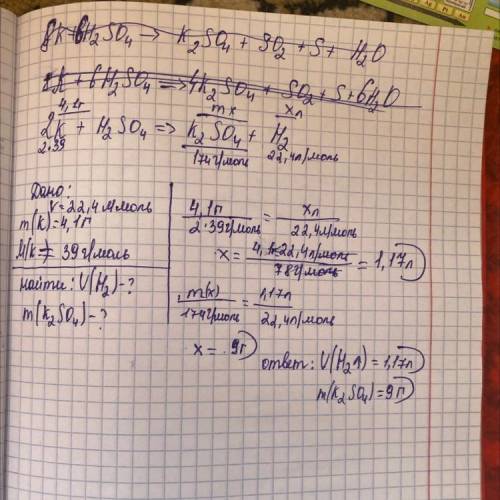 8K+6H₂SO₄ → K₂SO₄ + SO₂ + S + H₂O
8K + 6H₂SO₄ => 4K₂SO₄ + SO₂ + S + 6H₂O
4,1г mx xл
2K + H₂SO₄ => K₂SO₄ + H₂
2·39 174г/моль 22,4л/моль
Дано:
V=22,4 л/моль
m(K)=4,1г
M(K)= 39г/моль
найти: V(H₂)-?
m(K₂SO₄)-?
4,1г / 2·39г/моль = xл / 22,4л/моль
x = 4,1г·22,4л/моль / 78г/моль = 1,17л
m(x) / 174г/моль = 1,17л / 22,4л/моль
x = 9г
ответ: V(H₂л)=1,17л
m(K₂SO₄)=9г